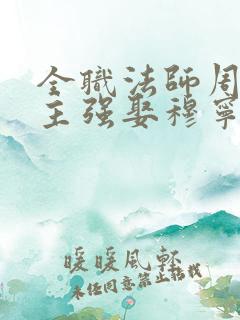 全職法師周
主强娶穆寧
暖暖風軒
未经同意禁止转载